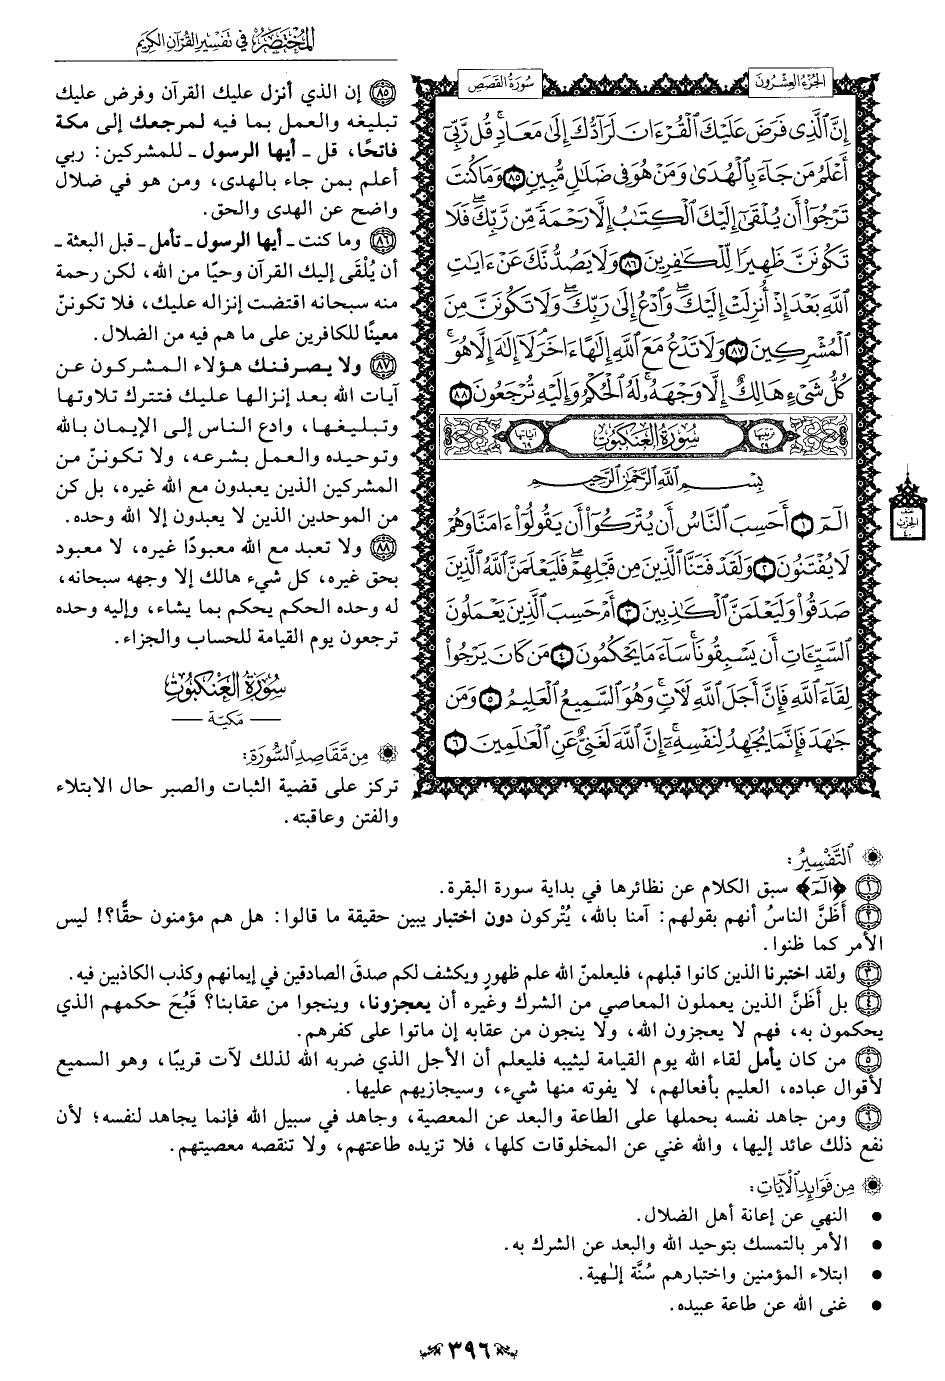 المختصر في تفسير القرآن الكريم
الجزء العشرون
سورة القصص
إِنَّ ٱلَّذِى فَرَضَ عَلَيْكَ ٱلْقُرْءَانَ لَرَآدُّكَ إِلَىٰ مَعَادٍ ۚ قُل رَّبِّىٓ
أَعْلَمُ مَن جَآءَ بِٱلْهُدَىٰ وَمَنْ هُوَ فِى ضَلَٰلٍ مُّبِينٍ ٨٥ وَمَا كُنتَ
تَرْجُوٓا۟ أَن يُلْقَىٰٓ إِلَيْكَ ٱلْكِتَٰبُ إِلَّا رَحْمَةً مِّن رَّبِّكَ ۖ فَلَا
تَكُونَنَّ ظَهِيرًا لِّلْكَٰفِرِينَ ٨٦ وَلَا يَصُدُّنَّكَ عَنْ ءَايَٰتِ
ٱللَّهِ بَعْدَ إِذْ أُنزِلَتْ إِلَيْكَ ۖ وَٱدْعُ إِلَىٰ رَبِّكَ ۖ وَلَا تَكُونَنَّ مِنَ
ٱلْمُشْرِكِينَ ٨٧ وَلَا تَدْعُ مَعَ ٱللَّهِ إِلَٰهًا ءَاخَرَ ۘ لَآ إِلَٰهَ إِلَّا هُوَ ۚ
كُلُّ شَىْءٍ هَالِكٌ إِلَّا وَجْهَهُۥ ۚ لَهُ ٱلْحُكْمُ وَإِلَيْهِ تُرْجَعُونَ ٨٨
ترتيبها ٢٩
سورة العنكبوت
آياتها ٦٩
بِسْمِ ٱللَّهِ ٱلرَّحْمَٰنِ ٱلرَّحِيمِ
الٓمٓ ١ أَحَسِبَ ٱلنَّاسُ أَن يُتْرَكُوٓا۟ أَن يَقُولُوٓا۟ ءَامَنَّا وَهُمْ
لَا يُفْتَنُونَ ٢ وَلَقَدْ فَتَنَّا ٱلَّذِينَ مِن قَبْلِهِمْ ۖ فَلَيَعْلَمَنَّ ٱللَّهُ ٱلَّذِينَ
صَدَقُوا۟ وَلَيَعْلَمَنَّ ٱلْكَٰذِبِينَ ٣ أَمْ حَسِبَ ٱلَّذِينَ يَعْمَلُونَ
ٱلسَّيِّـَٔاتِ أَن يَسْبِقُونَا ۚ سَآءَ مَا يَحْكُمُونَ ٤ مَن كَانَ يَرْجُوا۟
لِقَآءَ ٱللَّهِ فَإِنَّ أَجَلَ ٱللَّهِ لَءَاتٍ ۚ وَهُوَ ٱلسَّمِيعُ ٱلْعَلِيمُ ٥ وَمَن
جَٰهَدَ فَإِنَّمَا يُجَٰهِدُ لِنَفْسِهِۦٓ ۚ إِنَّ ٱللَّهَ لَغَنِىٌّ عَنِ ٱلْعَٰلَمِينَ ٦
الحزب
٤٠
٨٥ إن الذي أنزل عليك القرآن وفرض عليك
تبليغه والعمل بما فيه لمرجعك إلى مكة
فاتحًا، قل ـ أيها الرسول ـ للمشركين: ربي
أعلم بمن جاء بالهدى، ومن هو في ضلال
واضح عن الهدى والحق.
٨٦ وما كنت ـ أيها الرسول ـ تأمل ـ قبل البعثة ـ
أن يُلْقَى إليك القرآن وحيًا من الله، لكن رحمة
منه سبحانه اقتضت إنزاله عليك، فلا تكوننّ
معينًا للكافرين على ما هم فيه من الضلال.
٨٧ ولا يصرفنك هؤلاء المشركون عن
آيات الله بعد إنزالها عليك فتترك تلاوتها
وتبليغها، وادع الناس إلى الإيمان بالله
وتوحيده والعمل بشرعه، ولا تكوننّ من
المشركين الذين يعبدون مع الله غيره، بل كن
من الموحدين الذين لا يعبدون إلا الله وحده.
٨٨ ولا تعبد مع الله معبودًا غيره، لا معبود
بحق غيره، كل شيء هالك إلا وجهه سبحانه،
له وحده الحكم يحكم بما يشاء، وإليه وحده
ترجعون يوم القيامة للحساب والجزاء.
سورة العنكبوت
— مكية —
من مقاصد السورة:
تركز على قضية الثبات والصبر حال الابتلاء
والفتن وعاقبته.
التفسير:
١ ﴿الٓمٓ﴾ سبق الكلام عن نظائرها في بداية سورة البقرة.
٢ أَظَنَّ الناسُ أنهم بقولهم: آمنا بالله، يُتْركون دون اختبار يبين حقيقة ما قالوا: هل هم مؤمنون حقًّا؟! ليس
الأمر كما ظنوا.
٣ ولقد اختبرنا الذين كانوا قبلهم، فليعلمنّ الله علم ظهورٍ ويكشف لكم صدقَ الصادقين في إيمانهم وكذب الكاذبين فيه.
٤ بل أَظَنَّ الذين يعملون المعاصي من الشرك وغيره أن يعجزونا، وينجوا من عقابنا؟ قَبُحَ حكمهم الذي
يحكمون به، فهم لا يعجزون الله، ولا ينجون من عقابه إن ماتوا على كفرهم.
٥ من كان يأمل لقاء الله يوم القيامة ليثيبه فليعلم أن الأجل الذي ضربه الله لذلك لآت قريبًا، وهو السميع
لأقوال عباده، العليم بأفعالهم، لا يفوته منها شيء، وسيجازيهم عليها.
٦ ومن جاهد نفسه بحملها على الطاعة والبعد عن المعصية، وجاهد في سبيل الله فإنما يجاهد لنفسه؛ لأن
نفع ذلك عائد إليها، والله غني عن المخلوقات كلها، فلا تزيده طاعتهم، ولا تنقصه معصيتهم.
من فوائد الآيات:
• النهي عن إعانة أهل الضلال.
• الأمر بالتمسك بتوحيد الله والبعد عن الشرك به.
• ابتلاء المؤمنين واختبارهم سُنَّة إلٰهية.
• غنى الله عن طاعة عبيده.
٣٩٦